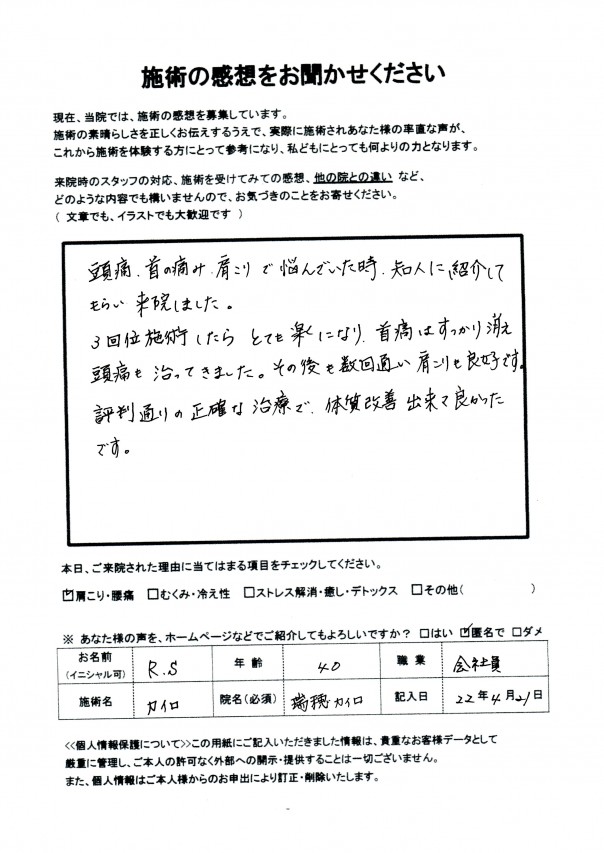 施術の感想をお聞かせください
現在、当院では、施術の感想を募集しています。
施術の素晴らしさを正しくお伝えするうえで、実際に施術されあなた様の率直な声が、
これから施術を体験する方にとって参考になり、私どもにとっても何よりの力となります。
来院時のスタッフの対応、施術を受けてみての感想、他の院との違い など、
どのような内容でも構いませんので、お気づきのことをお寄せください。
( 文章でも、イラストでも大歓迎です )
頭痛、首の痛み、肩こりで悩んでいた時、知人に紹介して
もらい来院しました。
3回位施術したらとても楽になり、首痛はすっかり消え
頭痛も治ってきました。その後も数回通い肩こりも良好です。
評判通りの正確な治療で、体質改善出来て良かった
です。
本日、ご来院された理由に当てはまる項目をチェックしてください。
☑肩こり・腰痛 □むくみ・冷え性 □ストレス解消・癒し・デトックス □その他( )
※ あなた様の声を、ホームページなどでご紹介してもよろしいですか? □はい ☑匿名で □ダメ
お名前(イニシャル可) R.S 年齢 40 職業 会社員
施術名 カイロ 院名(必須) 瑞穂カイロ 記入日 22年4月21日
<<個人情報保護について>>この用紙にご記入いただきました情報は、貴重なお客様データとして
厳重に管理し、ご本人の許可なく外部への開示・提供することは一切ございません。
また、個人情報はご本人様からのお申出により訂正・削除いたします。